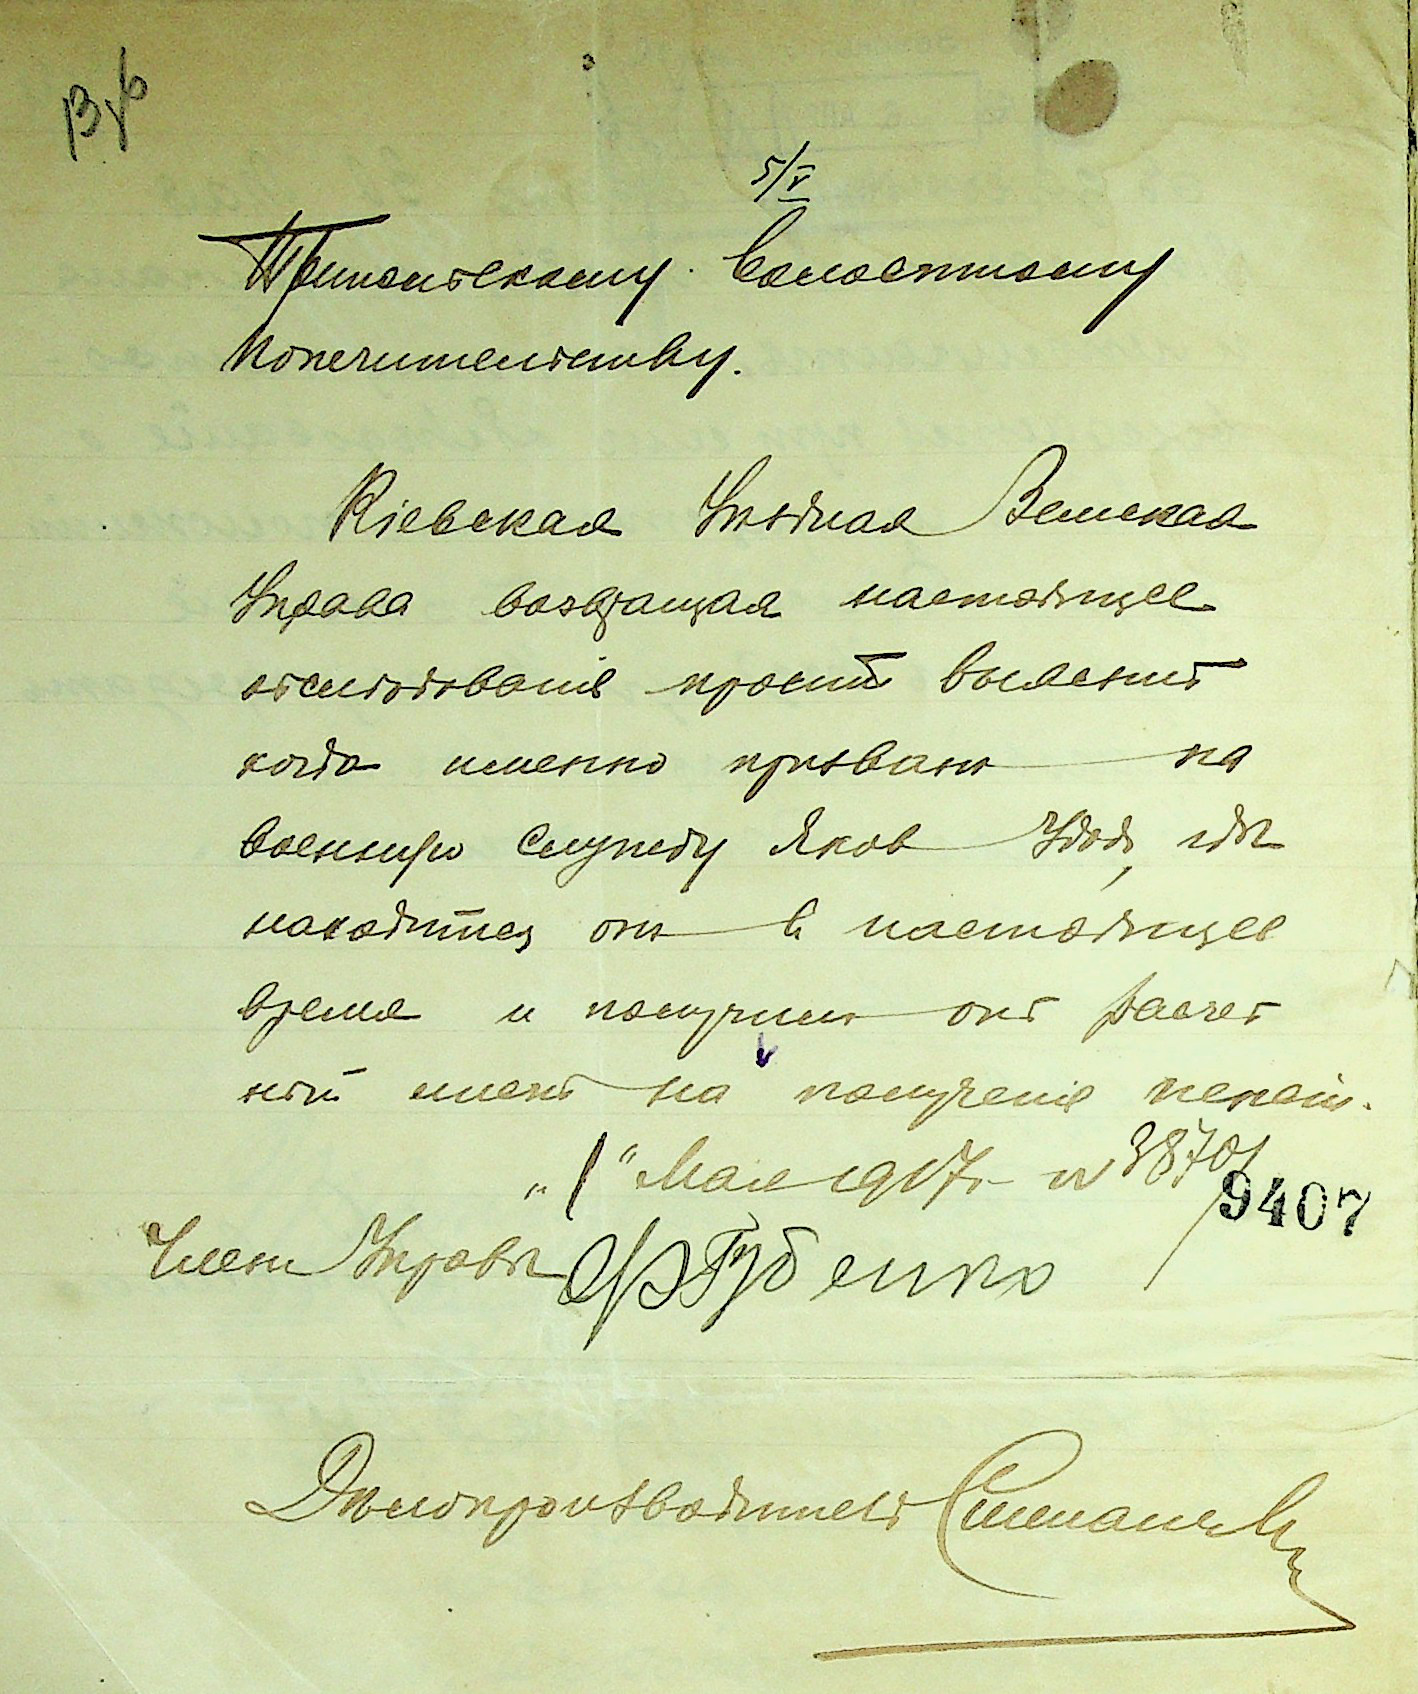 5/V
Трипольскому Волостному
Попечительству.
Кіевская Уѣздная Земская
Управа возвращая настоящее
обслѣдованіе проситъ выяснить
когда именно призванъ на
военную службу Яков Удод, гдѣ
находится онъ в настоящее
время и получилъ онъ расчет
ный листъ на получение
"1" Мая 1917 г. № 38701
9407
Членъ Управы Губенко
Дѣлопроизводитель